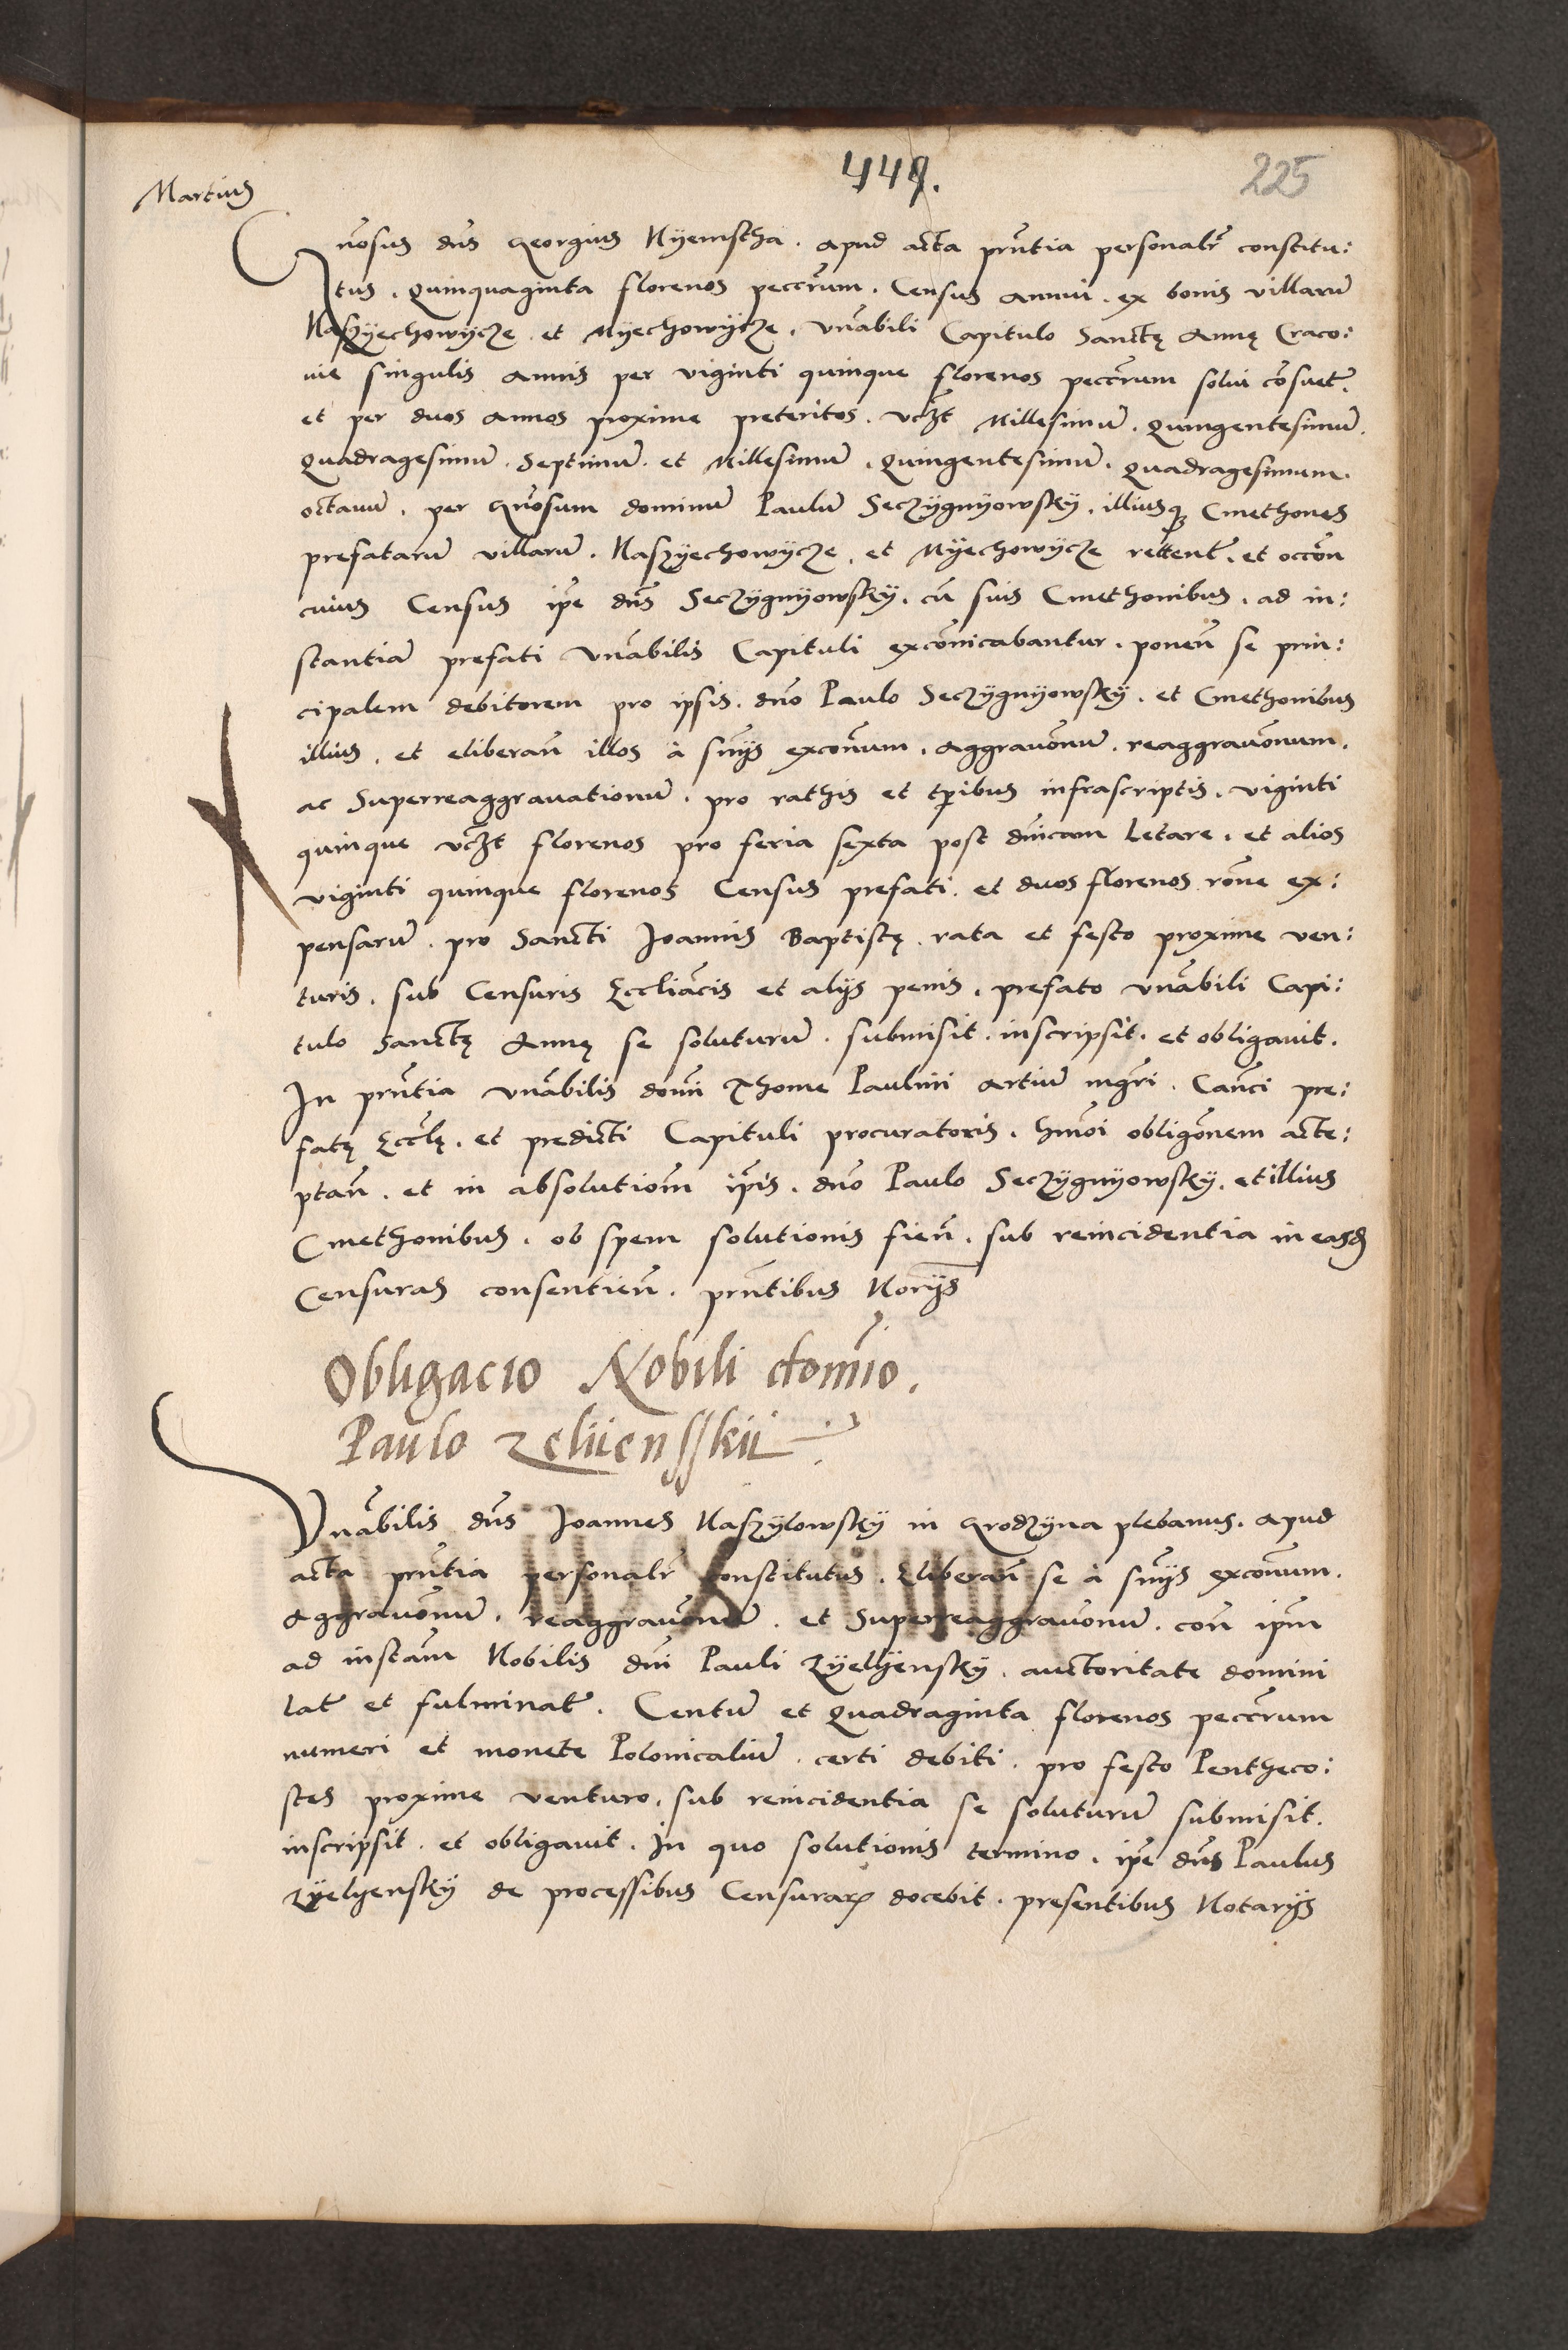 Martius
449.
225
Gnosus dns Georgius Nyemstha . apud acta prntia personalr constitu:
tus . Quinquaginta florenos peccrum . Census annui . ex bonis villaru
Naszyechowycze . et Myechowycze . vnabili Capitulo Sanctę Annę Craco:
uie singulis annis per viginti quinque florenos peccrum solui cosuet .
et per duos annos proxime preteritos . vczt Millesimu . Quingentesimu .
Quadragesimu . Septimu . et Millesimu . Quingentesimu . Quadragesimum .
octauu . per Gnosum dominu Paulu Seczygnyowsky . illiusq Cmethones
prefataru villaru . Naszyechowycze . et Myechowycze retent . et occon
cuius Census ipe dns Seczygnyowsky . cu suis Cmethonibus . ad in:
stantia prefati vnabilis Capituli excoicabantur . ponen se prin:
cipalem debitorem pro ipsis . dno Paulo Seczygnyowsky . et Cmethonibus
illius . et eliberan illos à snijs exconum . aggrauonu . reaggrauonum .
ac Superreaggrauationu . pro rathis et tpibus infrascriptis . viginti
quinque vczt florenos pro feria sexta post dnicam Letare . et alios
viginti quinque florenos Census prefati . et duos florenos rone ex:
pensaru . pro Sancti Joannis Baptistę . rata et festo proxime ven:
turis . sub Censuris Eccliacis et alijs penis . prefato vnabili Capi:
tulo Sanctę Annę se soluturu . submisit . inscripsit . et obligauit .
In prntia vnabilis domi Thome Paulini artiu mgri . Canci pre:
fatę Ecclę . et predicti Capituli procuratoris . hmoi obligonem acce:
ptan . et in absolutiom ipis . dno Paulo Seczygnyowsky . et illius
Cmethonibus . ob spem solutionis fien . sub reincidentia in easd
Censuras consentien . prntibus Norijs
Obligacio Nobili domio .
Paulo Zeliiensskii
Vnabilis dns Joannes Naszylowsky in Grodzyna plebanus . apud
acta prntia personalr constitutus . Eliberan se à snijs exconum .
Aggrauonu . reaggrauonu . et Superreaggrauonu . con ipm
ad instam Nobilis dni Pauli Zyelyensky . auctoritate domini
lat et fulminat . Centu et Quadraginta florenos peccrum
numeri et monete Polonicaliu . certi debiti . pro festo Pentheco:
stes proxime venturo . sub reincidentia se soluturu submisit .
inscripsit . et obligauit . In quo solutionis termino . ipe dns Paulus
Zyelyensky de processibus Censurar docebit . presentibus Notarijs